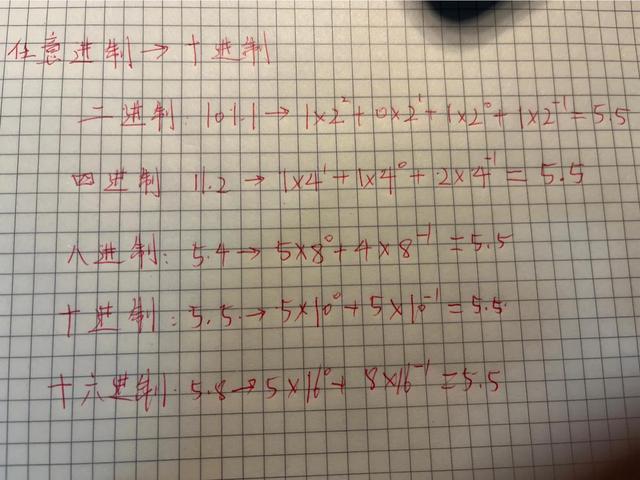 任意进制→十进制
二进制:101.1→1×2²+0×2¹+1×2⁰+1×2⁻¹=5.5
四进制 11.2→1×4¹+1×4⁰+2×4⁻¹=5.5
八进制:5.4→5×8⁰+4×8⁻¹=5.5
十进制:5.5→5×10⁰+5×10⁻¹=5.5
十六进制:5.8→5×16⁰+8×16⁻¹=5.5